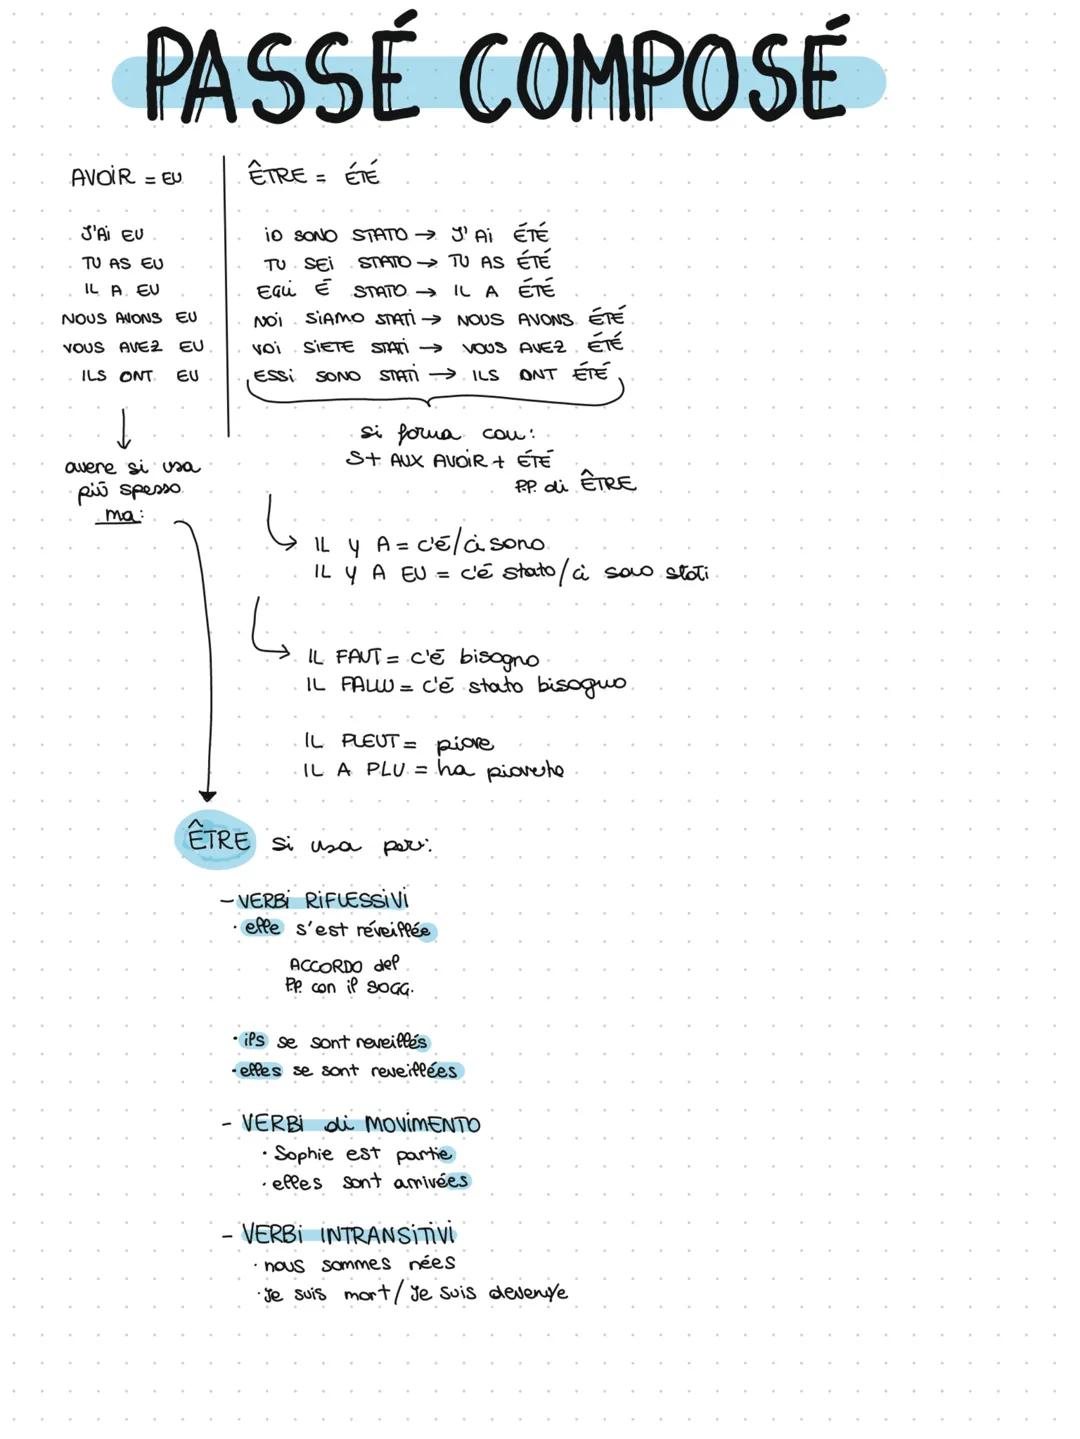 PASSÉ COMPOSÉ
AVOIR = EU
J'Ai EU
TU AS EU
IL A EU
NOUS AVONS EU
VOUS AVEZ EU
ILS ONT EU
avere si usa
più spesso
ma:
ÊTRE = ÉTÉ
iO SONO STATO → J'Ai ÉTÉ
TU SEi STATO → TU AS ÉTÉ
EGLi É STATO → IL A ÉTÉ
NOi SiAMO STATi → NOUS AVONS ÉTÉ
VOi SiETE STATi → VOUS AVEZ ÉTÉ
ESSi SONO STATi → ILS ONT ÉTÉ
si forma con:
S + AUX AVOIR + ÉTÉ
P.P. di ÊTRE
IL Y A = c'é/ci sono
IL Y A EU = c'é stato/ci sono stati
IL FAUT = c'é bisogno
IL FALLU = c'é stato bisogno
IL PLEUT = piove
IL A PLU = ha piovuto
ÊTRE si usa per:
- VERBi RiFLESSiVi
· elle s'est réveillée
ACCORDO del
P.P. con il SOGG.
· ils se sont reveillés
· elles se sont reveillées
- VERBi di MOViMENTO
· Sophie est partie
· elles sont arrivées
- VERBi INTRANSiTiVi
· nous sommes nées
· Je suis mort/Je suis devenue